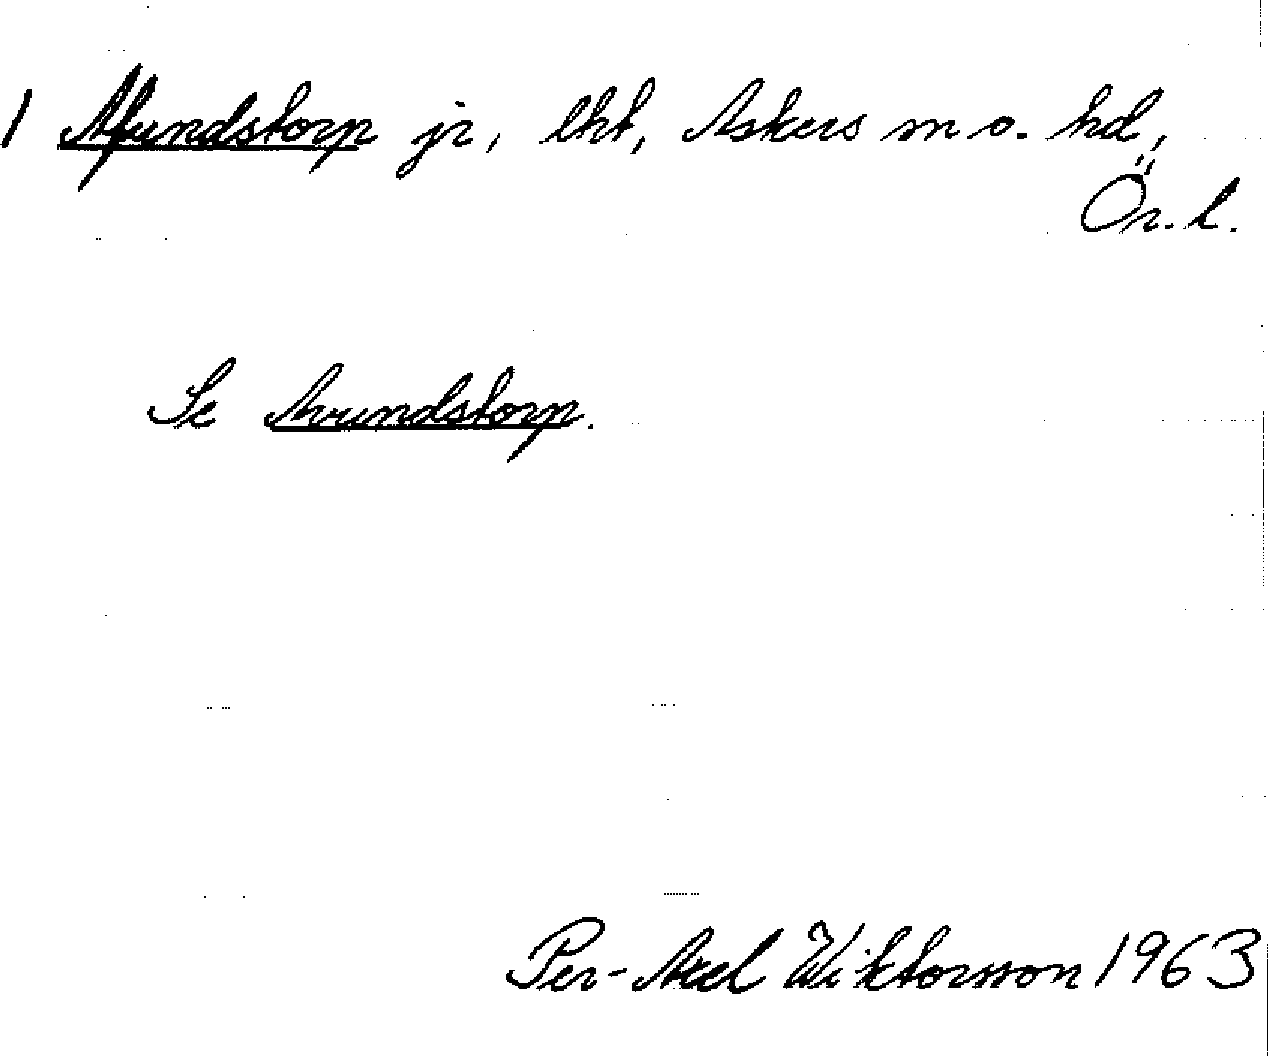 1 Afundstorp jr, lht, Askers sn o. hd,
Ör. l.
Se Avundstorp.
Per-Axel Wiktorsson 1963